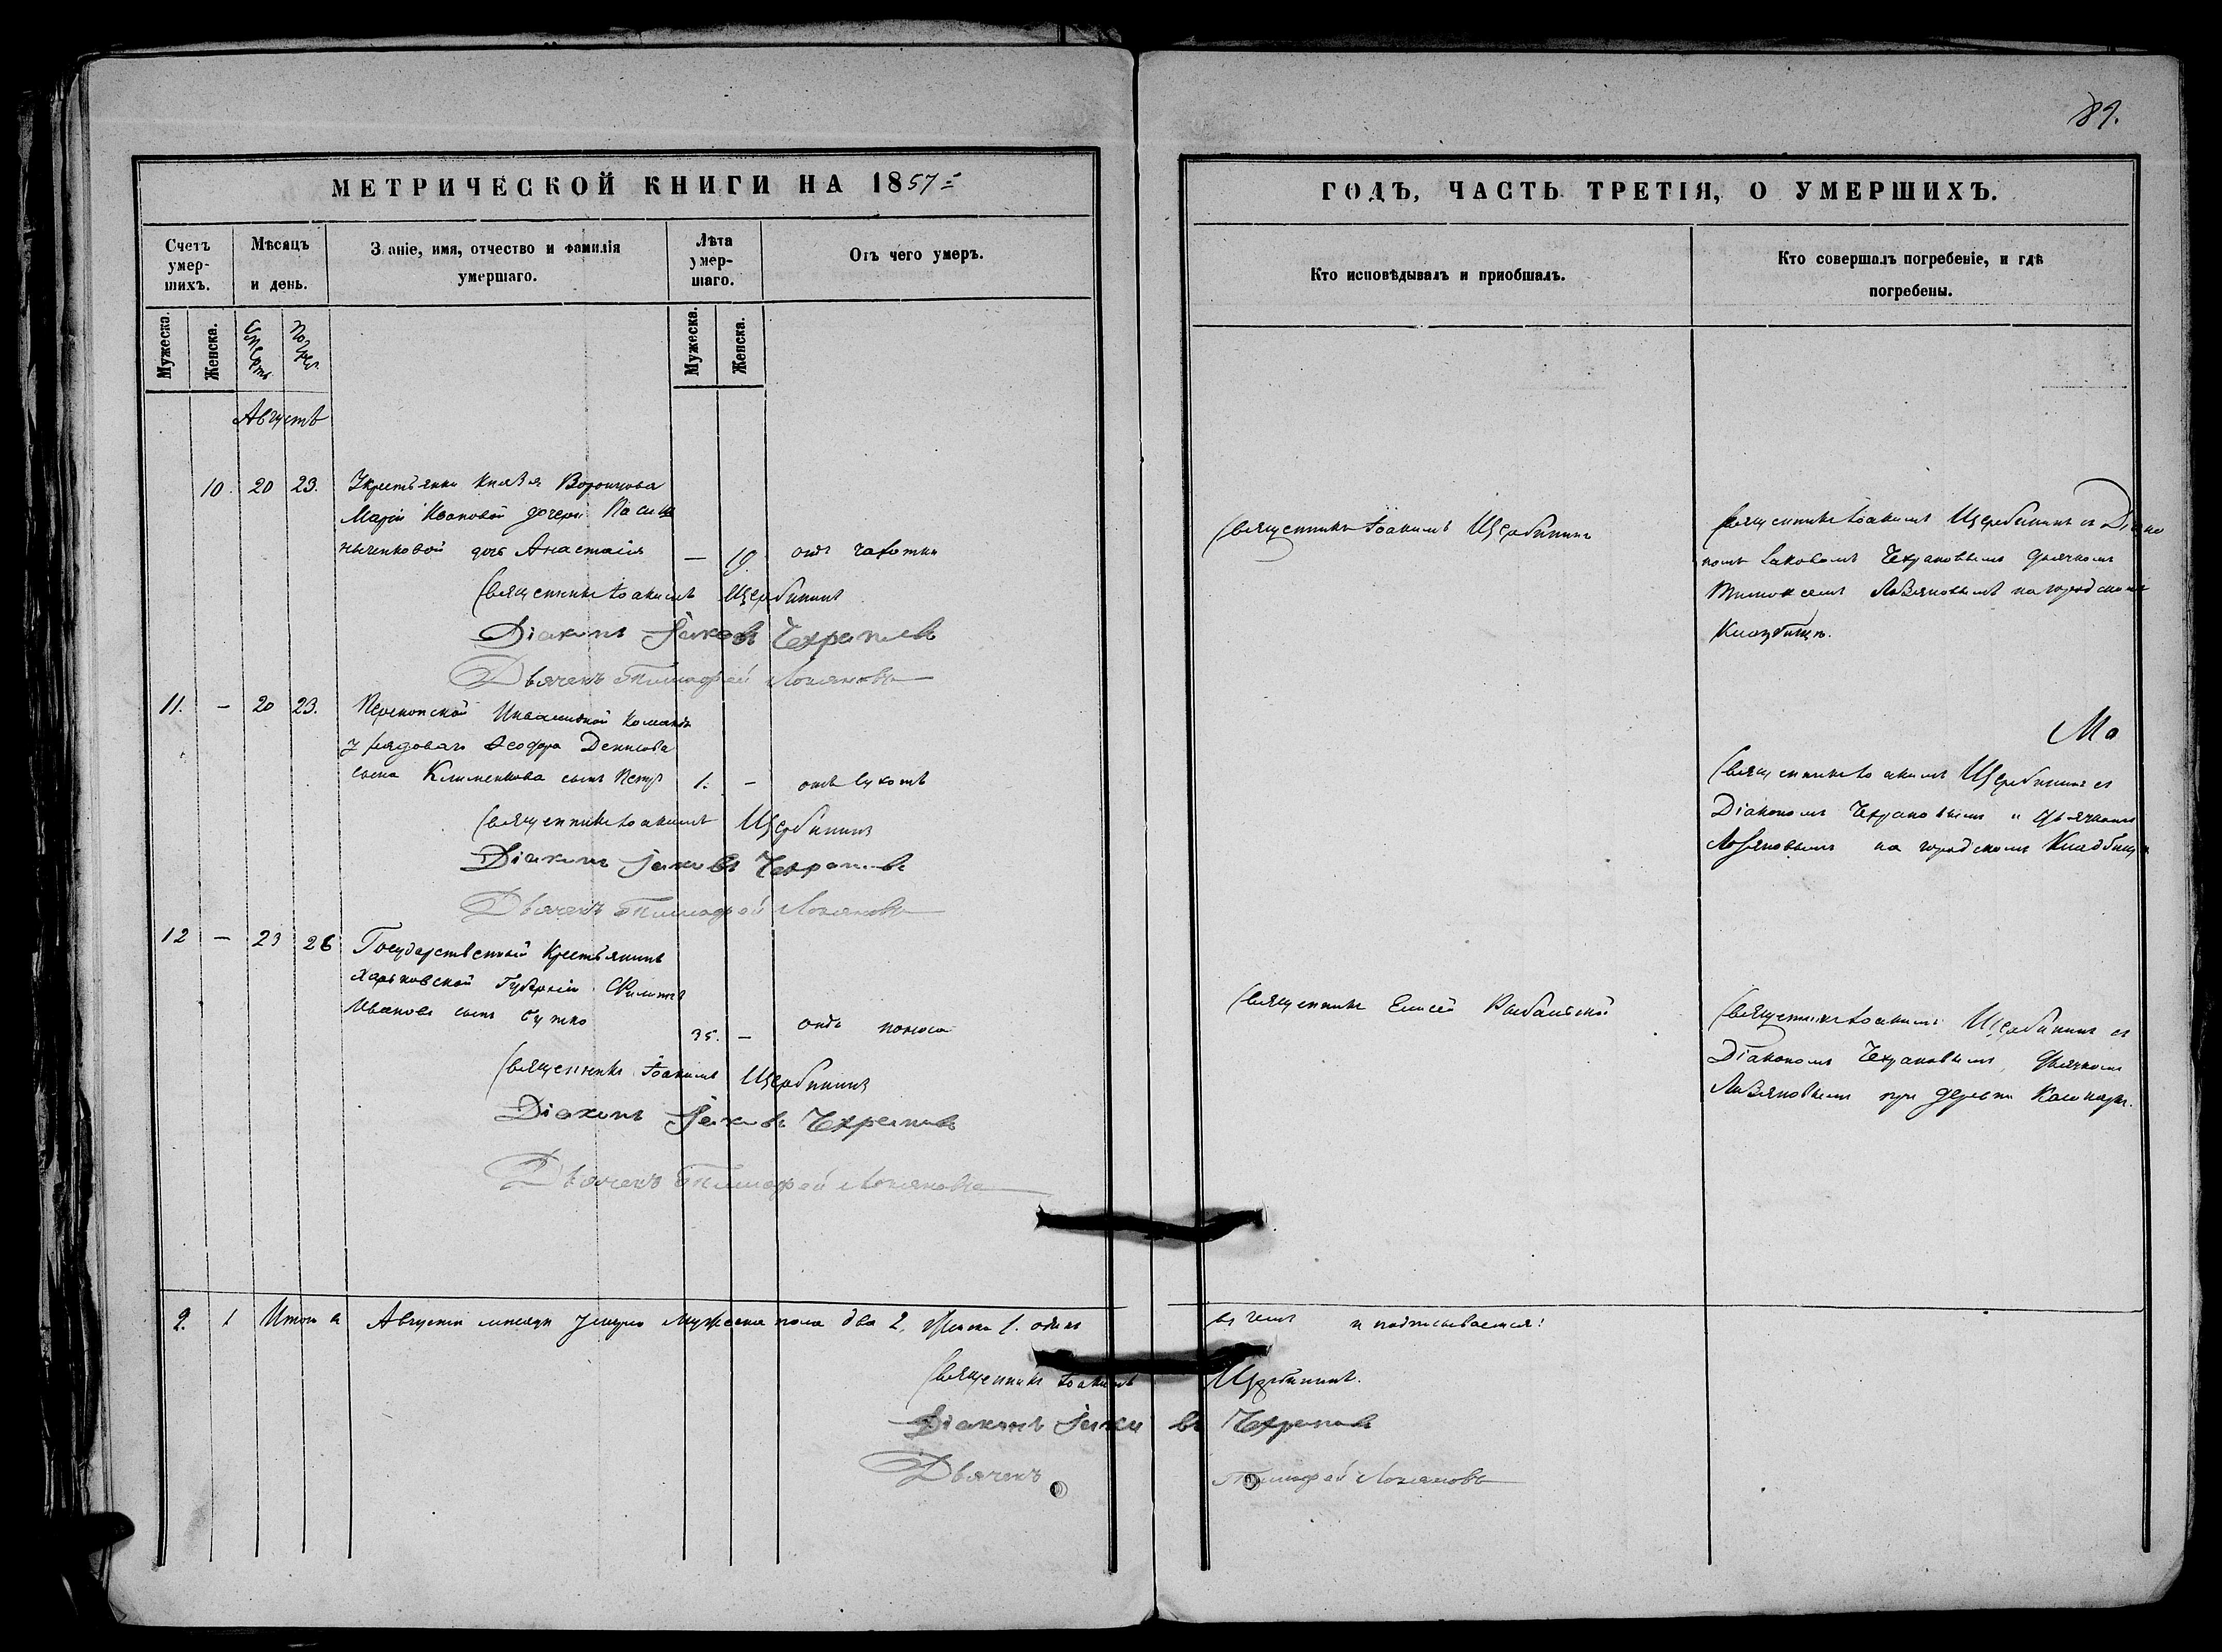 89.
МЕТРИЧЕСКОЙ КНИГИ НА 1857
ГОДЪ, ЧАСТЬ ТРЕТІЯ, О УМЕРШИХЪ.
Счетъ умер-шихъ.
Мѣсяцъ и день.
Званіе, имя, отчество и фамилія умершаго.
Лѣта умер-шаго.
Отъ чего умеръ.
Кто исповѣдывалъ и пріобщалъ.
Кто совершалъ погребеніе, и гдѣ погребены.
Мужеска.
Женска.
Смерть
Погреб
Мужеска.
Женска.
Августъ
10. 20 23. У крестьянки Князя Воронцова
Маріи Ивановой дочери
дочь Анастасія — отъ чахотки
Священникъ Іоакимъ Щербининъ
Діаконъ Іаковъ Чехрановъ
Дьячекъ Тимофей
Священникъ Іоакимъ Щербининъ
Священникъ Іоакимъ Щербининъ съ Діако
номъ Іаковомъ Чехрановымъ дьячкомъ
на городскомъ
Кладбищѣ.
11. — 20 23. Перекопской Инвалидной команды
у рядоваго Ѳеодора Денисова
сына Клименкова сынъ Петръ 1. — отъ сухотъ
Священникъ Іоакимъ Щербининъ
Діаконъ Іаковъ Чехрановъ
Дьячекъ Тимофей
Священникъ Іоакимъ Щербининъ съ
Діакономъ Чехрановымъ и дьячкомъ
на городскомъ Кладбищѣ
12 — 23 26 Государственный Крестьянинъ
Харьковской Губерніи Филиппъ
Ивановъ сынъ 35. — отъ поноса
Священникъ Іоакимъ Щербининъ
Діаконъ Іаковъ Чехрановъ
Дьячекъ Тимофей
Священникъ Елисей Рыбальскій
Священникъ Іоакимъ Щербининъ съ
Діакономъ Чехрановымъ, дьячкомъ
при деревни
2. 1 Итого въ Августѣ месяцѣ умерло Мужеска пола два 2, Женска 1. одинъ
въ чемъ и подписываемся:
Священникъ Іоакимъ Щербининъ.
Діаконъ Іаковъ Чехрановъ
Дьячекъ Тимофей